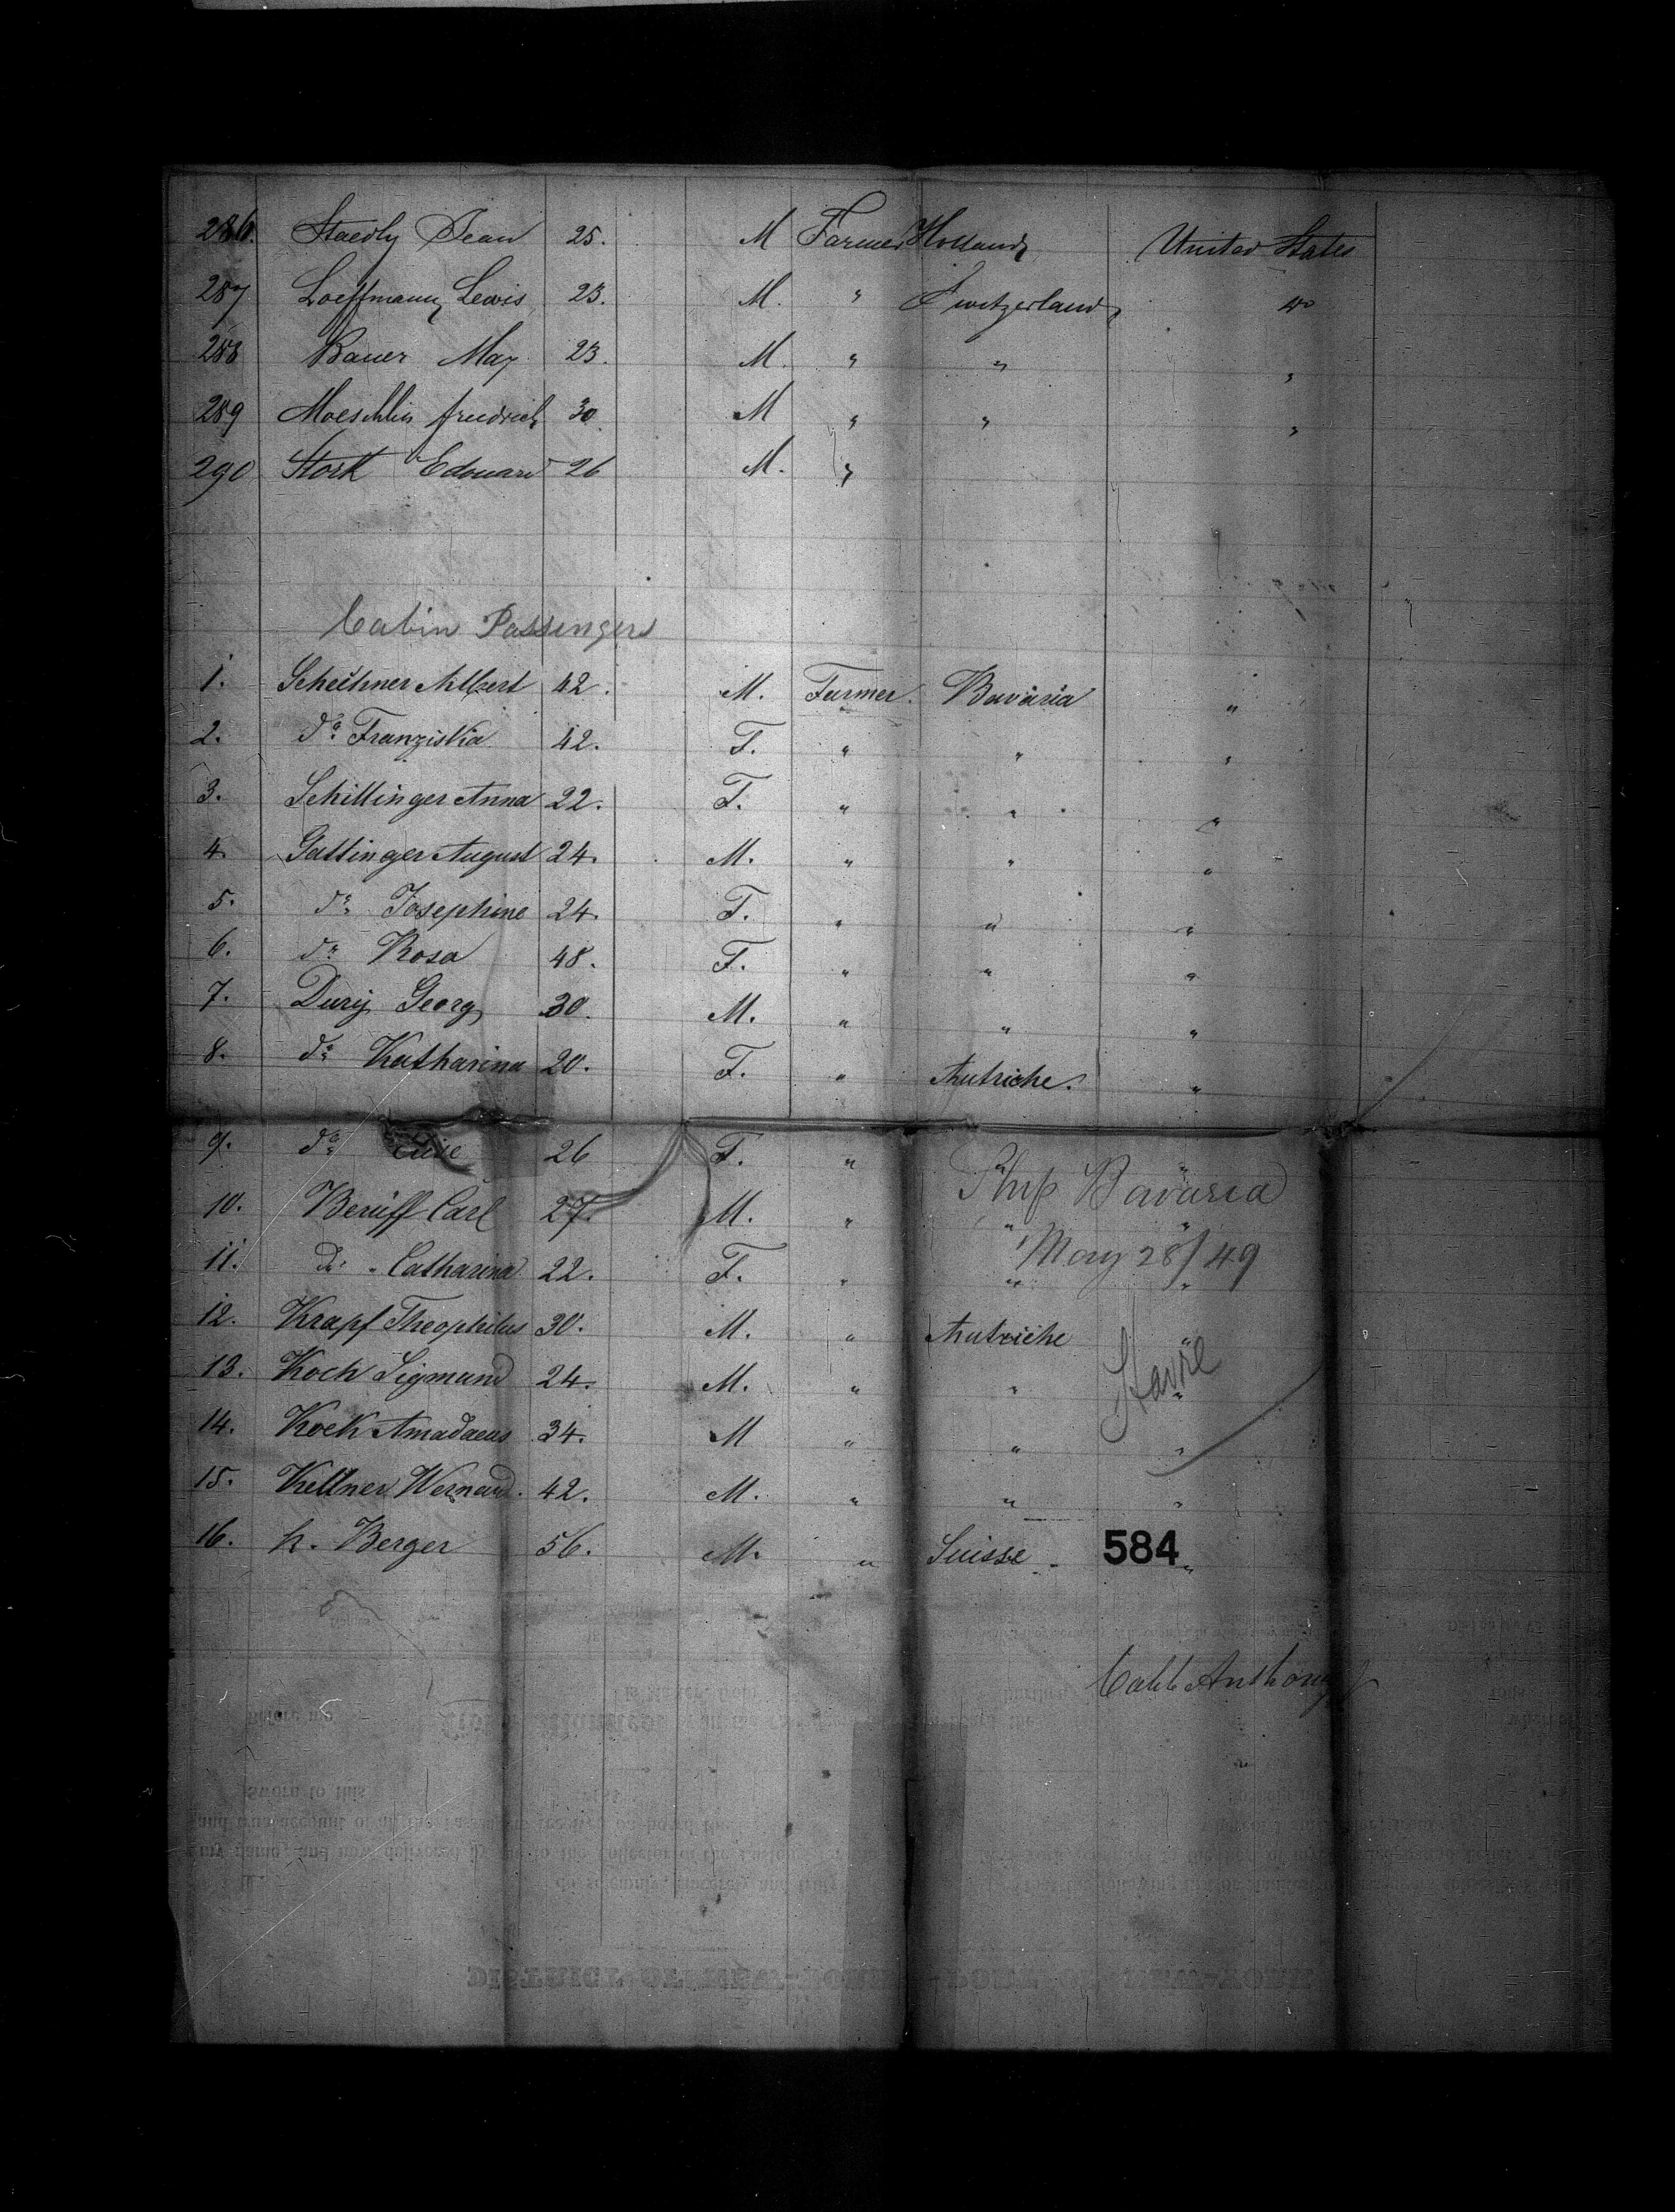 286. Staedly Jean 25. M Farmer Holland United States
287 Loeffmann Lewis 23. M. " Switzerland do
288 Bauer May 23. M. " " "
289 Moeschlin freidrich 30. M " " "
290 Stork Edouard 26 M. "
Cabin Passengers
1. Scheihner Albert 42. M. Farmer. Bavaria "
2. do. Franziska 42. F. " " "
3. Schillinger Anna 22. F. " " "
4. Gattinger August 24. M. " " "
5. do. Josephine 24. F. " " "
6. do. Rosa 48. F. " " "
7. Dury Georg 30. M. " " "
8. do. Katharina 20. F. " Autriche. "
9. do. 26 F. " " "
Ship Bavaria
10. Beruff Carl 27. M. " " "
May 28/49
11. do. Catharina 22. F. " " "
12. Krapf Theophilus 30. M. " Autriche "
Havre
13. Koch Sigmund 24. M. " " "
14. Koch Amadaeus 34. M " " "
15. Kellner Wernard. 42. M. " " "
16. h. Berger 56. M. " Suisse. "
584
Caleb Anthony